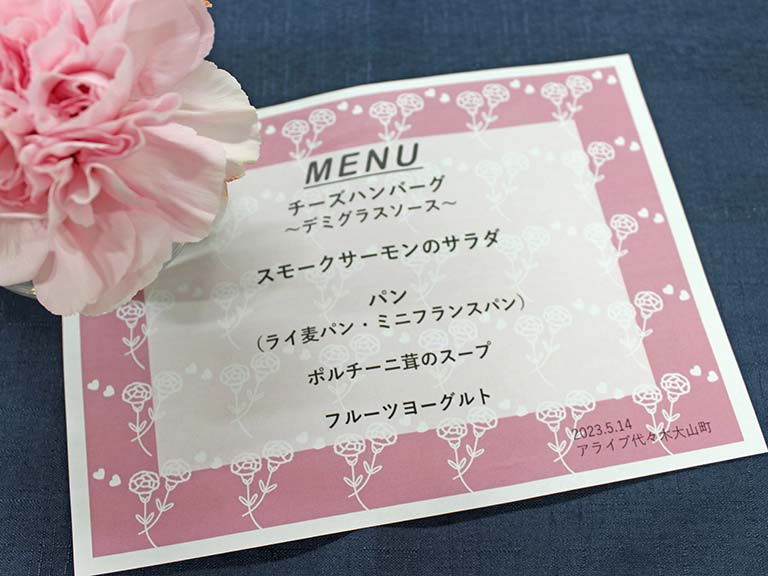 MENU
チーズハンバーグ
～デミグラスソース～
スモークサーモンのサラダ
パン
（ライ麦パン・ミニフランスパン）
ポルチーニ茸のスープ
フルーツヨーグルト
2023.5.14
アライブ代々木大山町